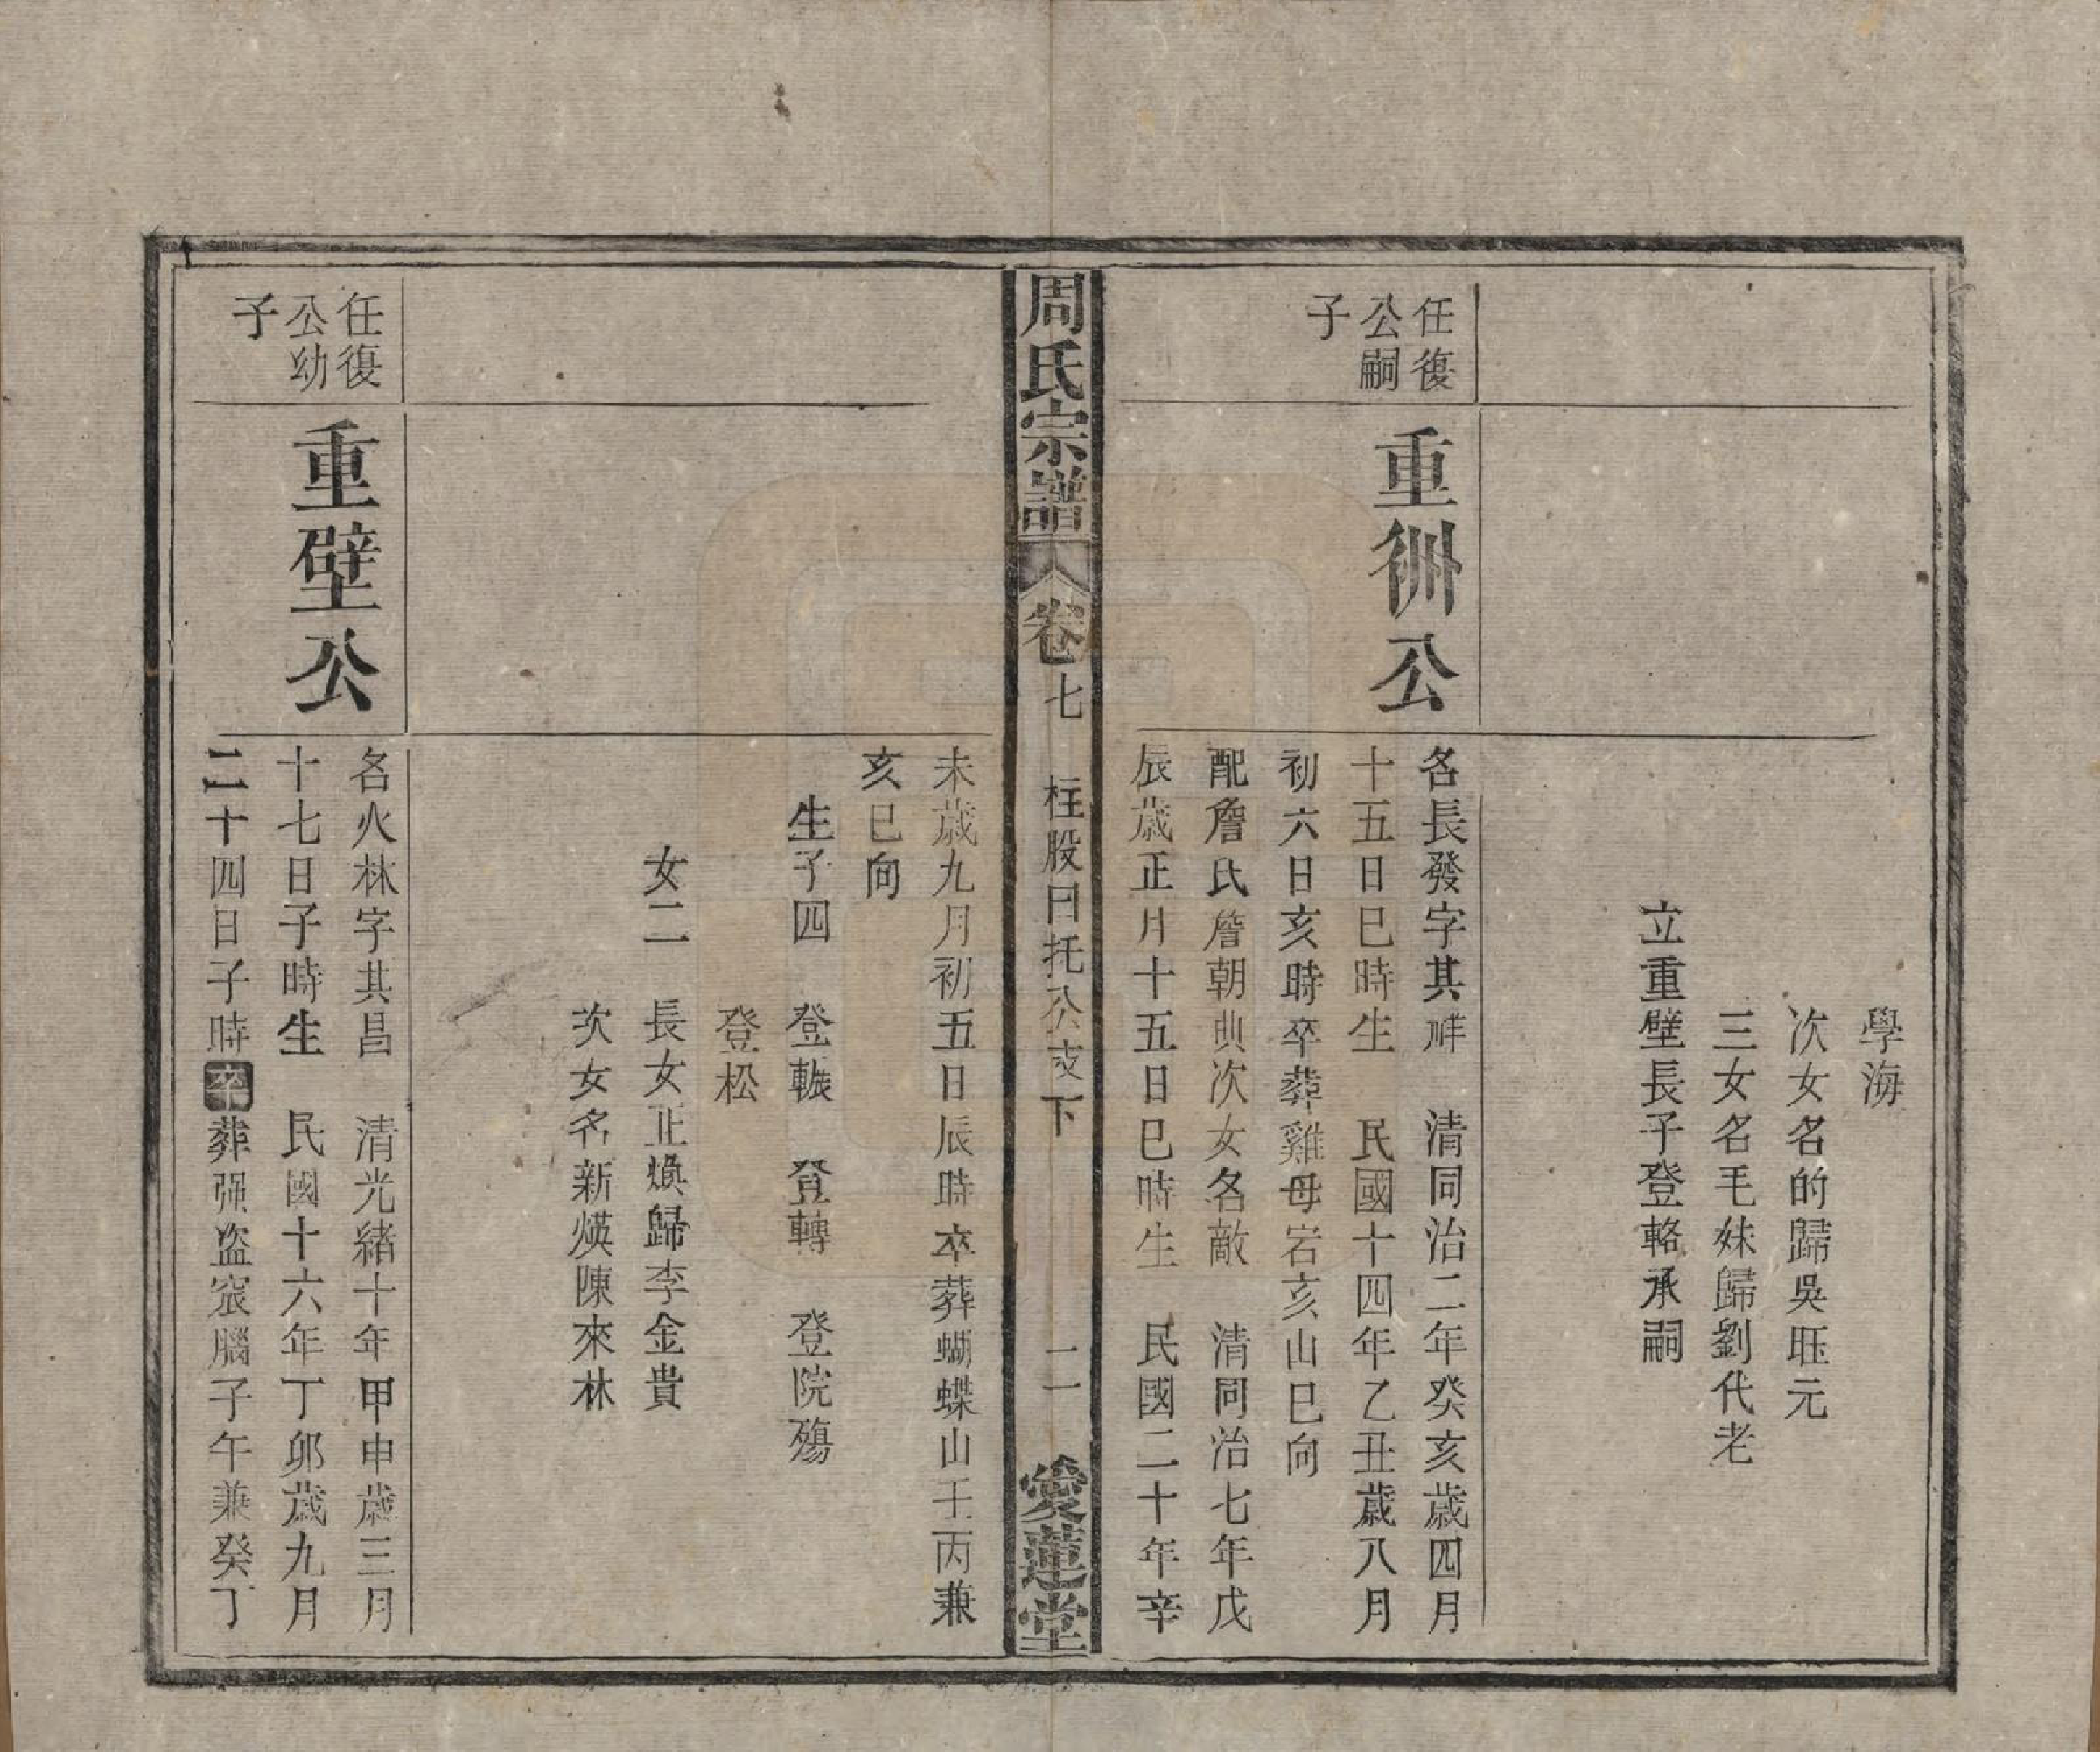 學海
次女名的歸吳旺元
三女名毛妹歸劉代老
立重壁長子登輅承嗣
任復
公嗣
子
重洲公
名長發字其祥　清同治二年癸亥歲四月
十五日巳時生　民國十四年乙丑歲八月
初六日亥時卒葬雞母岩亥山巳向
配詹氏詹朝典次女名敵　清同治七年戊
辰歲正月十五日巳時生　民國二十年辛
周氏宗譜　卷七　柱股曰托公支下　二一　愛蓮堂
未歲九月初五日辰時卒葬蝴蝶山壬丙兼
亥巳向
生子四　登輾　登轉　登院殤
登松
女二　長女正煥歸李金貴
次女名新煐陳來林
任復
公幼
子
重壁公
名火林字其昌　清光緒十年甲申歲三月
十七日子時生　民國十六年丁卯歲九月
二十四日子時卒葬强盜寮腦子午兼癸丁